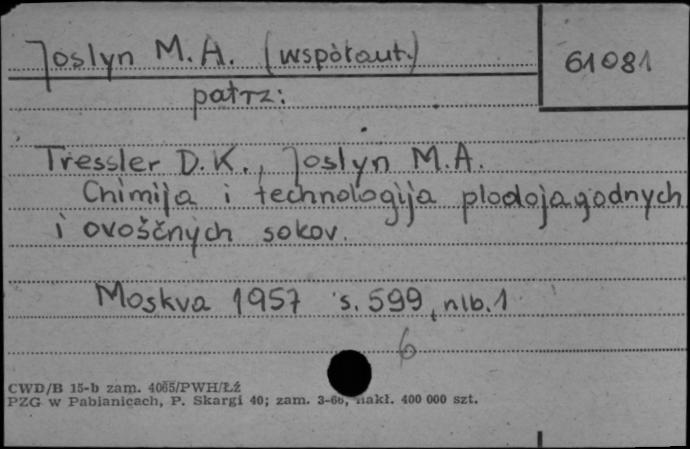 Joslyn M.A. (współaut.)
61081
patrz:
Tressler D.K., Joslyn M.A.
Chimija i technologija plodojagodnych
i ovoščnych sokov.
Moskva 1957 s. 599, nlb. 1
6
CWD/B 15-b zam. 4065/PWH/Łź
PZG w Pabianicach, P. Skargi 40; zam. 3-66, nakł. 400 000 szt.